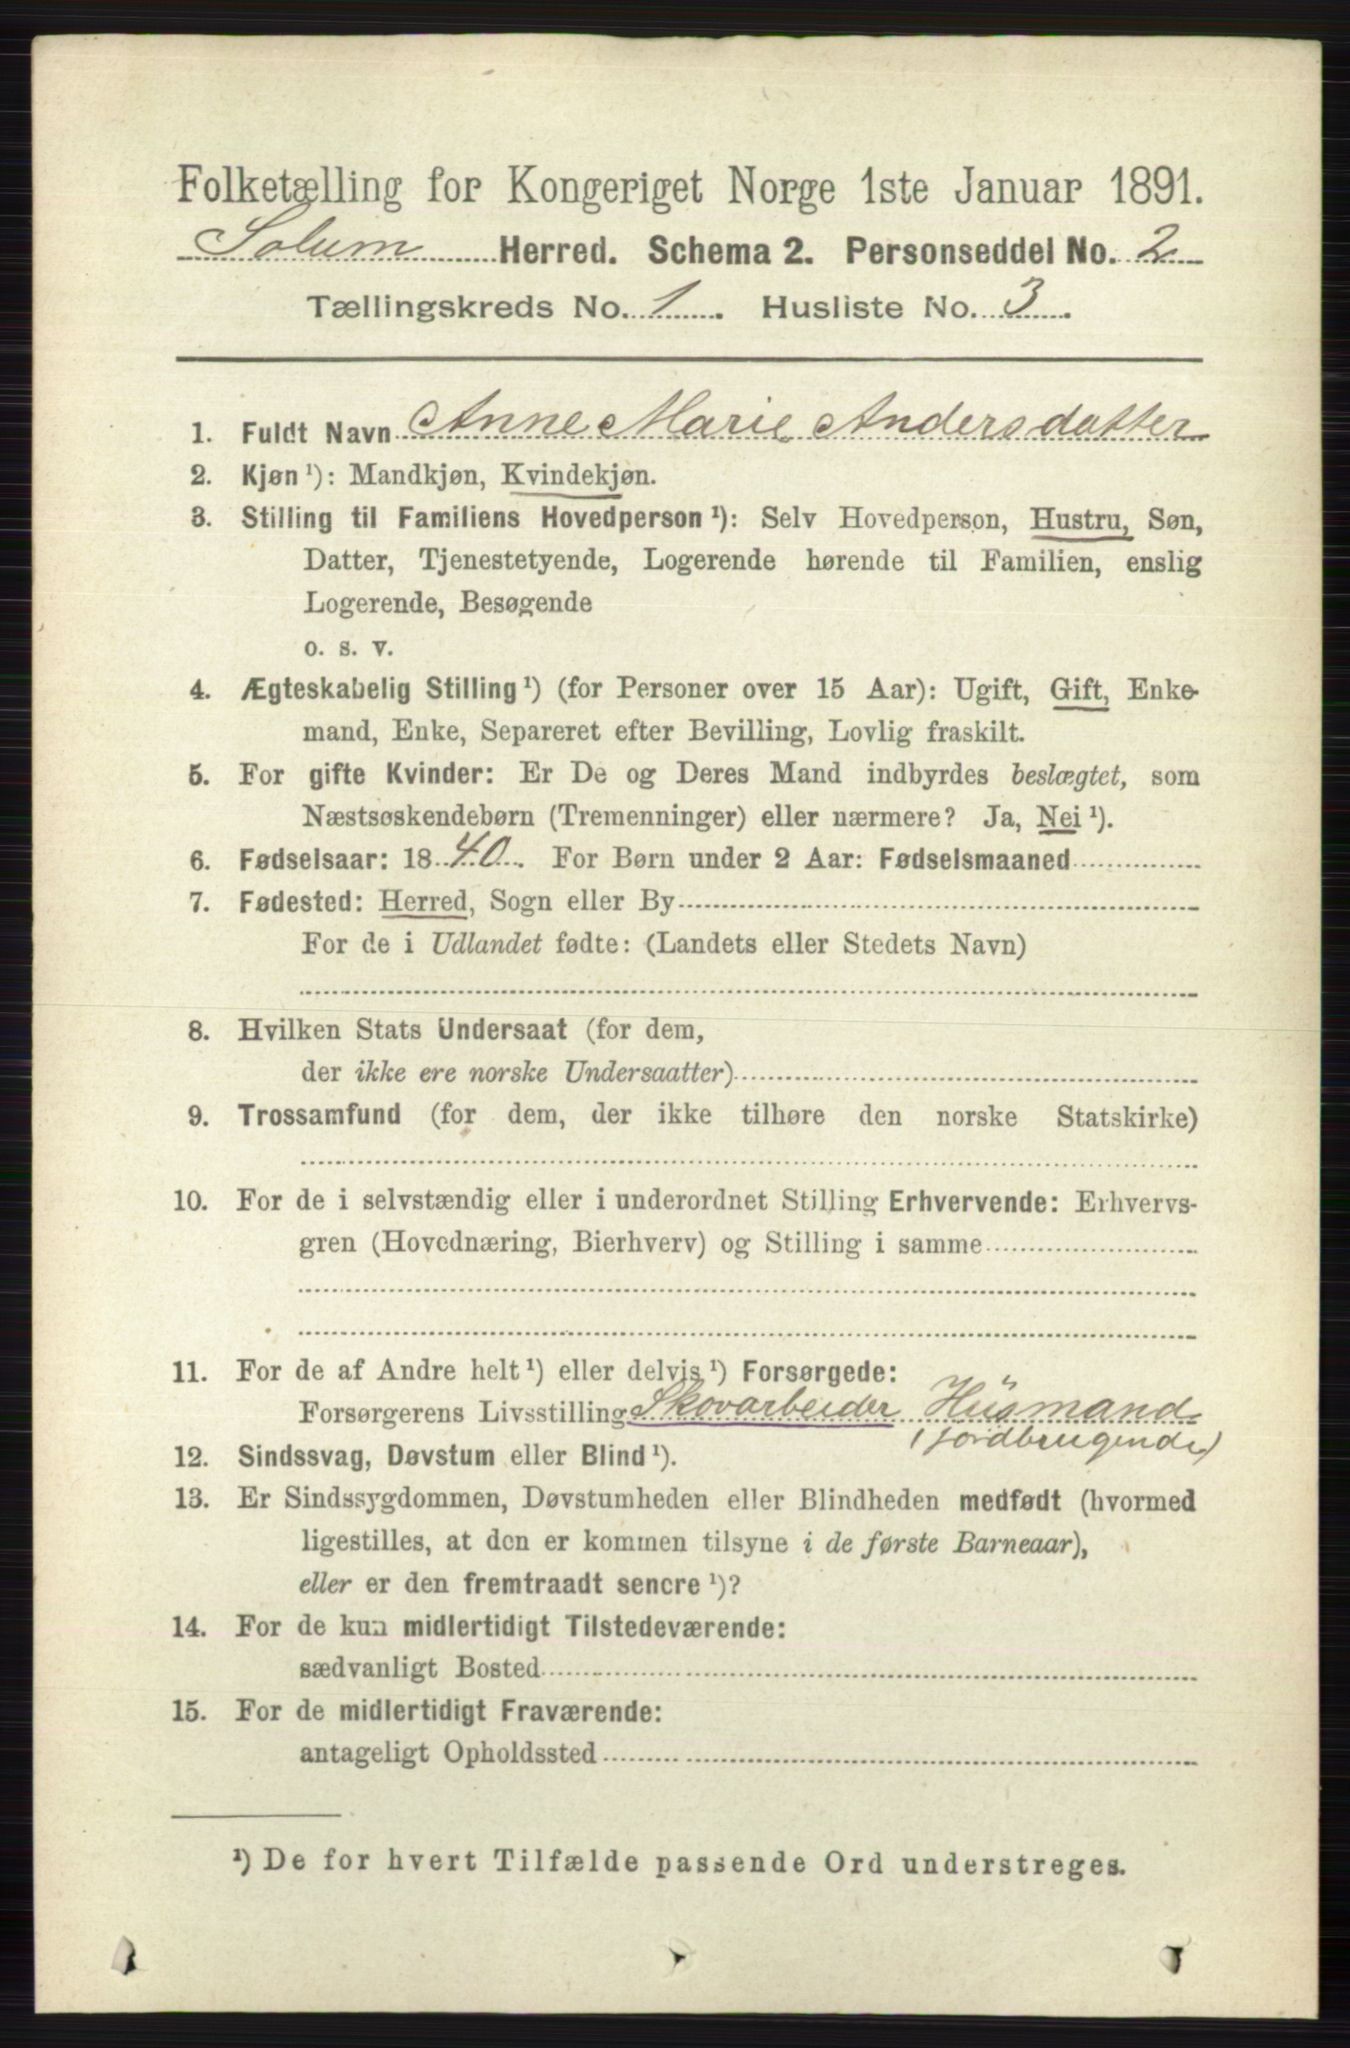 Folketælling for Kongeriget Norge 1ste Januar 1891.
Solum Herred. Schema 2. Personseddel No. 2
Tællingskreds No. 1. Husliste No. 3.
1. Fuldt Navn Anne Marie Andersdatter
2. Kjøn¹): Mandkjøn, Kvindekjøn.
3. Stilling til Familiens Hovedperson¹): Selv Hovedperson, Hustru, Søn,
Datter, Tjenestetyende, Logerende hørende til Familien, enslig
Logerende, Besøgende
o. s. v.
4. Ægteskabelig Stilling¹) (for Personer over 15 Aar): Ugift, Gift, Enke-
mand, Enke, Separeret efter Bevilling, Lovlig fraskilt.
5. For gifte Kvinder: Er De og Deres Mand indbyrdes beslægtet, som
Næstsøskendebørn (Tremenninger) eller nærmere? Ja, Nei¹).
6. Fødselsaar: 1840. For Børn under 2 Aar: Fødselsmaaned
7. Fødested: Herred, Sogn eller By
For de i Udlandet fødte: (Landets eller Stedets Navn)
8. Hvilken Stats Undersaat (for dem,
der ikke ere norske Undersaatter)
9. Trossamfund (for dem, der ikke tilhøre den norske Statskirke)
10. For de i selvstændig eller i underordnet Stilling Erhvervende: Erhvervs-
gren (Hovednæring, Bierhverv) og Stilling i samme
11. For de af Andre helt¹) eller delvis¹) Forsørgede:
Forsørgerens Livsstilling Skovarbeider Húsmand
(jordbrugende)
12. Sindssvag, Døvstum eller Blind¹).
13. Er Sindssygdommen, Døvstumheden eller Blindheden medfødt (hvormed
ligestilles, at den er kommen tilsyne i de første Barneaar),
eller er den fremtraadt senere¹)?
14. For de kun midlertidigt Tilstedeværende:
sædvanligt Bosted
15. For de midlertidigt Fraværende:
antageligt Opholdssted
¹) De for hvert Tilfælde passende Ord understreges.